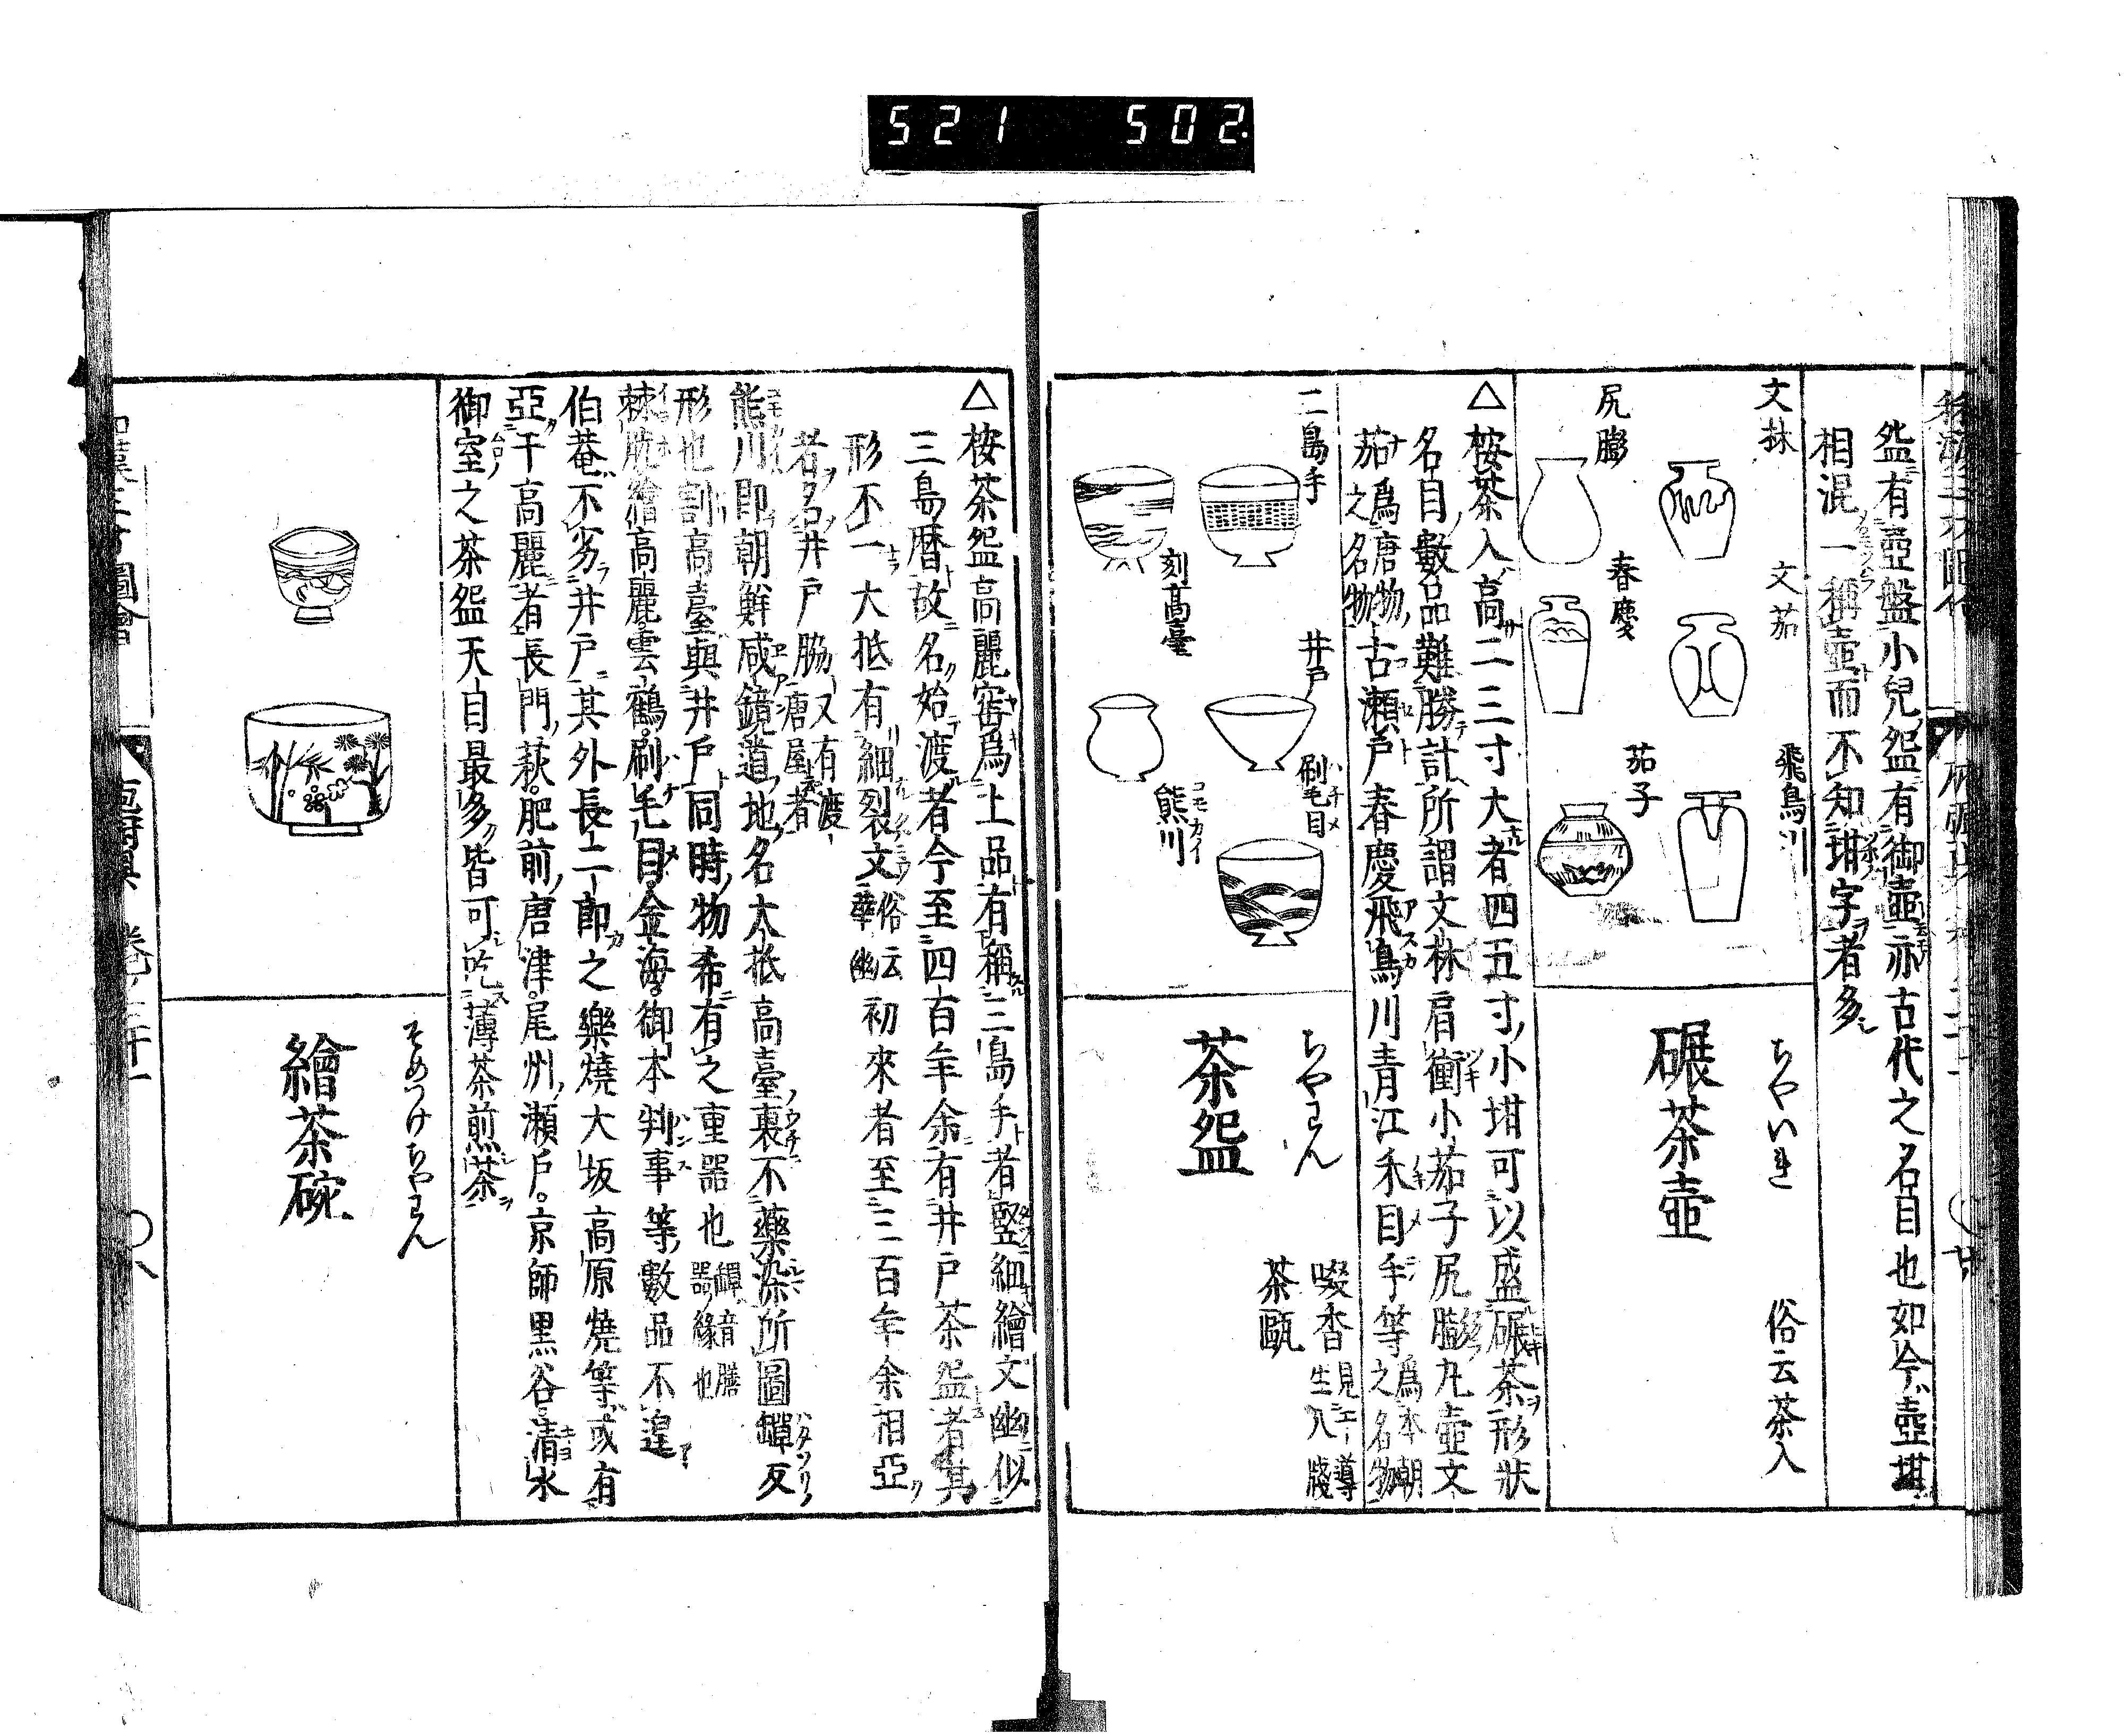 521 502
盌有壺盤小兒盌有御壺亦古代之名目也如今壺堪
相混一稱壺而不知坩字者多
文林
文茄
飛鳥川
尻膨
春慶
茄子
ちやいれ
俗云茶入
碾茶壺
△桉茶入高二三寸大者四五寸小坩可以盛碾茶形狀
名目數品難勝計所謂文林肩衝小茄子尻膨丸壺文
茄爲唐物之名物古瀬戸春慶飛鳥川青江禾目手等爲本朝之名物
三島手
井戸
刷毛目
刻高臺
熊川
ちやわん
茶盌
啜香
茶甌
△桉茶盌高麗窑爲上品有稱三島手者豎細繪文幽似
三島暦故名始渡者今至四百年余有井戸茶盌者其
形不一大抵有細裂文俗云華幽初來者至三百年余相亞
者名井戸脇又有渡唐屋者
熊川即朝鮮咸鏡道地名大抵高臺裏不藥染所圖罇反
形也割高臺與井戸同時物希有之重器也罇音膳器緣也
棘肬繪高麗雲鶴刷毛目金海御本判事等數品不遑
伯菴不劣井戸其外長二郎之樂燒大坂高原燒等或有
亞于高麗者長門萩肥前唐津尾州瀬戸京師黒谷清水
御室之茶盌天目最多皆可吃薄茶煎茶
そめつけちやわん
繪茶碗